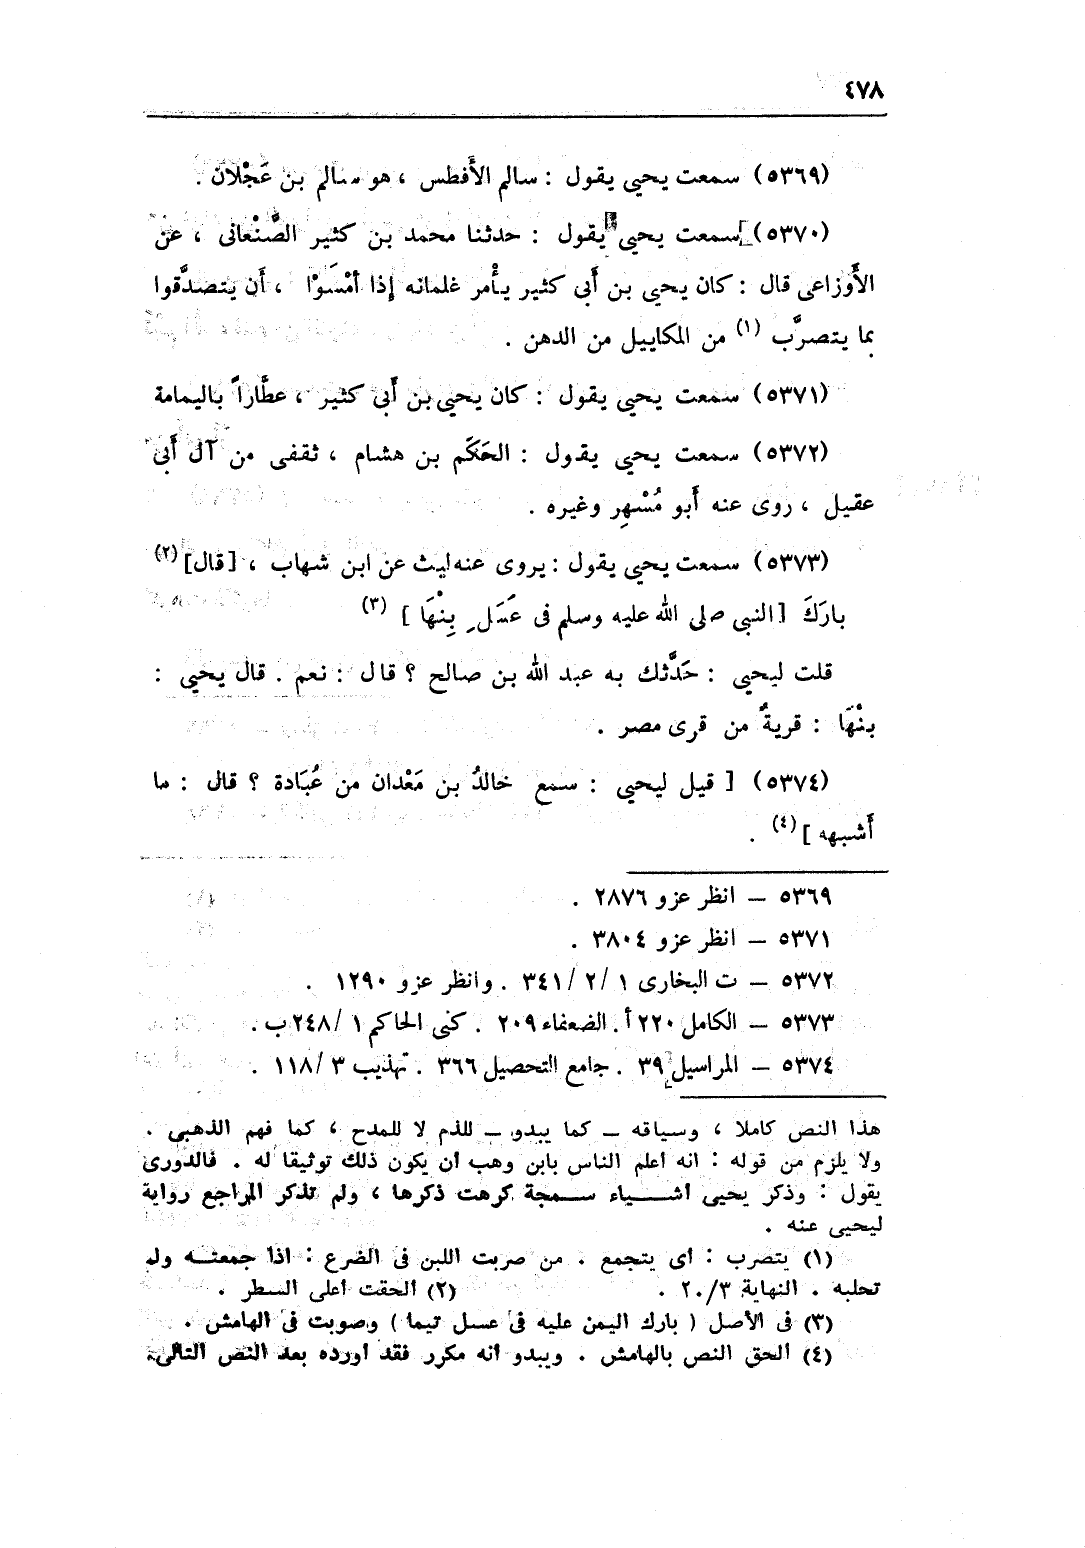 ٤٧٨
(٥٣٦٩) سمعت يحيى يقول : سالم الأَفطس ، هو سالم بن عَجْلان .
(٥٣٧٠) سمعت يحيى يقول : حدثنا محمد بن كثير الصَّنْعانى ، عن
الأَوزاعى قال : كان يحيى بن أَبى كثير يأْمر غلمانه إِذا أَمْسَوْا ، أَن يتصدَّقوا
بما يتصرَّب (١) من المكاييل من الدهن .
(٥٣٧١) سمعت يحيى يقول : كان يحيى بن أَبى كثير ، عطَّاراً باليمامة
(٥٣٧٢) سمعت يحيى يقول : الحَكَم بن هشام ، ثقفى من آل أَبى
عقيل ، روى عنه أَبو مُسْهِر وغيره .
(٥٣٧٣) سمعت يحيى يقول : يروى عنه ليث عن ابن شهاب ، [قال] (٢)
بارَكَ [النبى صلى الله عليه وسلم فى عَسَل بِنْهَا ] (٣)
قلت ليحيى : حَدَّثك به عبد الله بن صالح ؟ قال : نعم . قال يحيى :
بِنْهَا : قريةٌ من قرى مصر .
(٥٣٧٤) [ قيل ليحيى : سمع خالدُ بن مَعْدان من عُبَادة ؟ قال : ما
أَشبهه ] (٤) .
٥٣٦٩ – انظر عزو ٢٨٧٦ .
٥٣٧١ – انظر عزو ٣٨٠٤ .
٥٣٧٢ – ت البخارى ١ /٢ /٣٤١ . وانظر عزو ١٢٩٠ .
٥٣٧٣ – الكامل ٢٢٠ أ . الضعفاء ٢٠٩ . كنى الحاكم ١ /٢٤٨ ب .
٥٣٧٤ – المراسيل ٣٩ . جامع التحصيل ٣٦٦ . تهذيب ٣ /١١٨ .
هذا النص كاملا ، وسياقه – كما يبدو – للذم لا للمدح ، كما فهم الذهبى .
ولا يلزم من قوله : انه أعلم الناس بابن وهب أن يكون ذلك توثيقا له . فالدورى
يقول : وذكر يحيى أشـــياء ســمجة كرهت ذكرها ، ولم تذكر المراجع رواية
ليحيى عنه .
(١) يتصرب : أى يتجمع . من صربت اللبن فى الضرع : اذا جمعتــه ولم
تحلبه . النهاية ٢٠/٣ . (٢) الحقت أعلى السطر .
(٣) فى الأصل ( بارك اليمن عليه فى عسل تيما ) وصوبت فى الهامش .
(٤) الحق النص بالهامش . ويبدو أنه مكرر فقد أورده بعد النص التالى .